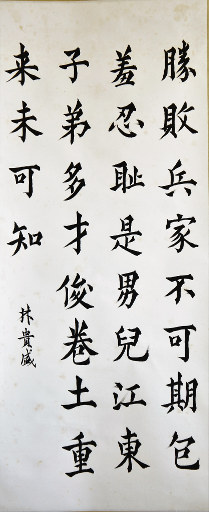 勝敗兵家不可期包
羞忍耻是男兒江東
子弟多才俊卷土重
来未可知
林貴盛